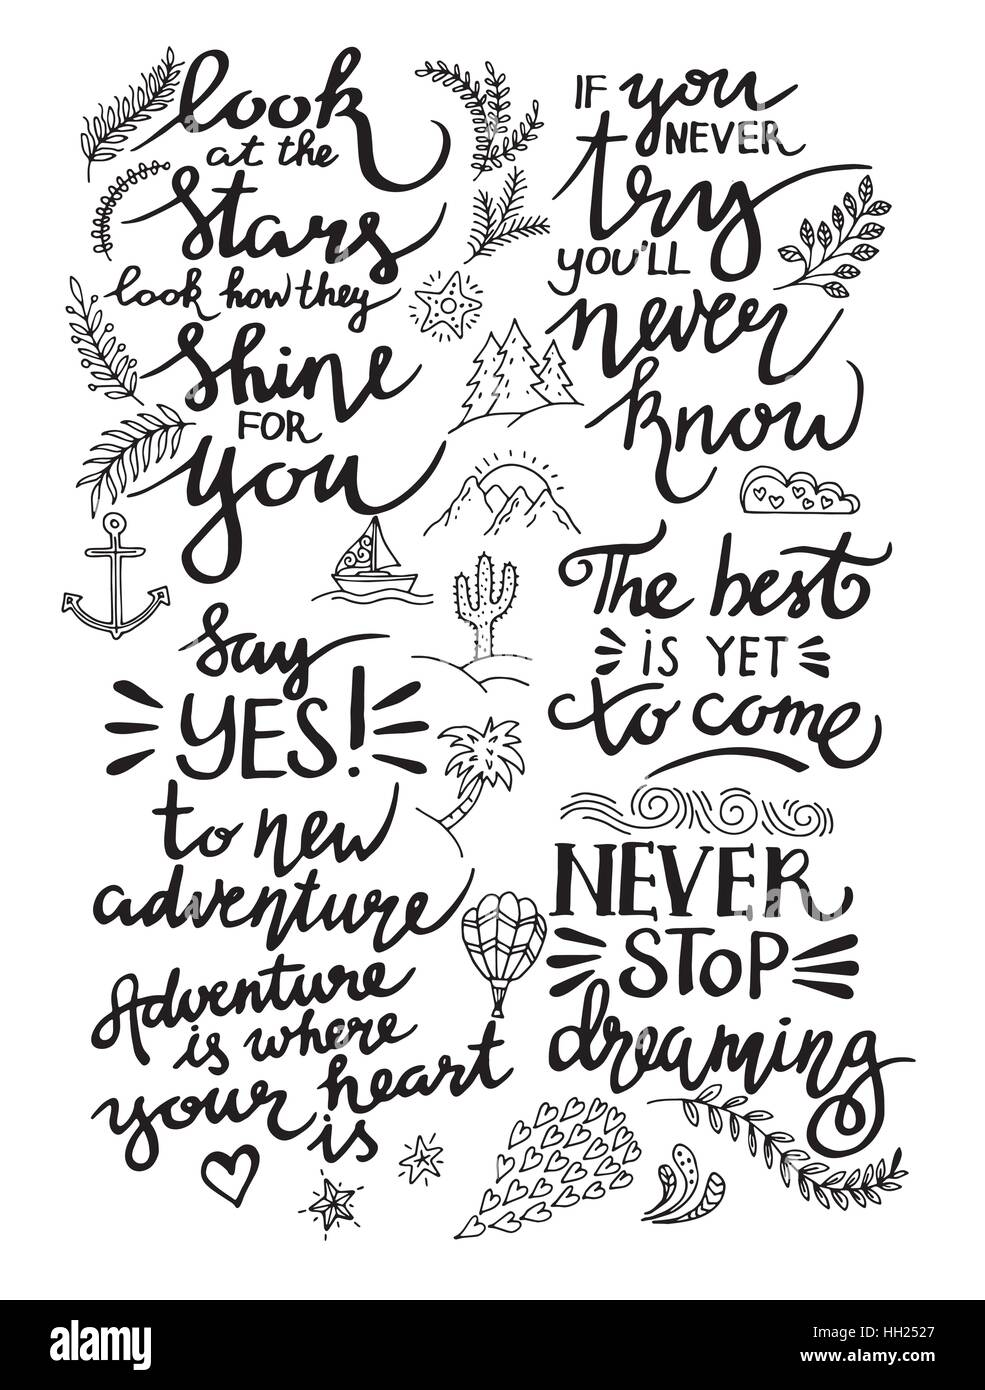 look
at the
Stars
look how they
Shine
FOR
you
Say
YES!
to new
adventure
Adventure
is where
your heart
is
IF you
NEVER
try
YOU'LL
never
know
The best
IS YET
to come
NEVER
STOP
dreaming
alamy
Image ID: HH2527
www.alamy.com